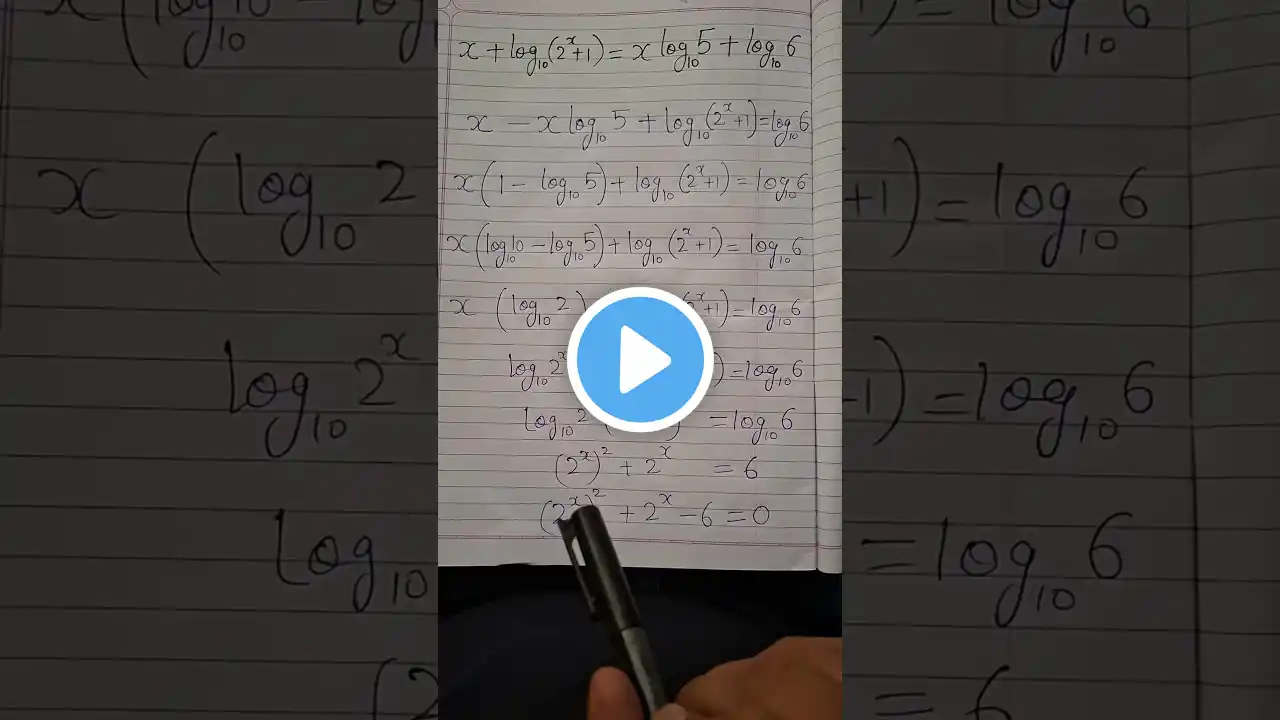 x + log₁₀(2ˣ+1) = x log₁₀5 + log₁₀6
x − x log₁₀5 + log₁₀(2ˣ+1) = log₁₀6
x(1 − log₁₀5) + log₁₀(2ˣ+1) = log₁₀6
x(log₁₀10 − log₁₀5) + log₁₀(2ˣ+1) = log₁₀6
x (log₁₀2) (2ˣ+1) = log₁₀6
log₁₀2ˣ ) = log₁₀6
log₁₀2 ( ) = log₁₀6
(2ˣ)² + 2ˣ = 6
(2ˣ)² + 2ˣ − 6 = 0